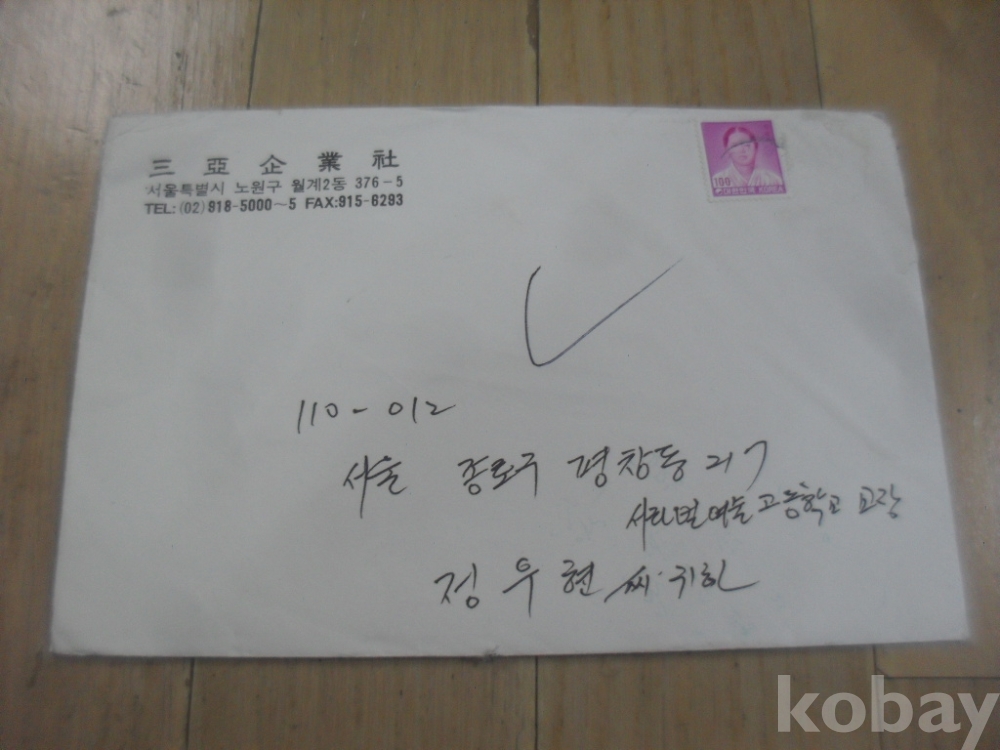 三亞企業社
서울특별시 노원구 월계2동 376-5
TEL:(02)918-5000~5 FAX:915-6293
100
대한민국 KOREA
110-012
서울 종로구 평창동 217
서라벌예술고등학교 교장
정우현 씨 귀하
kobay